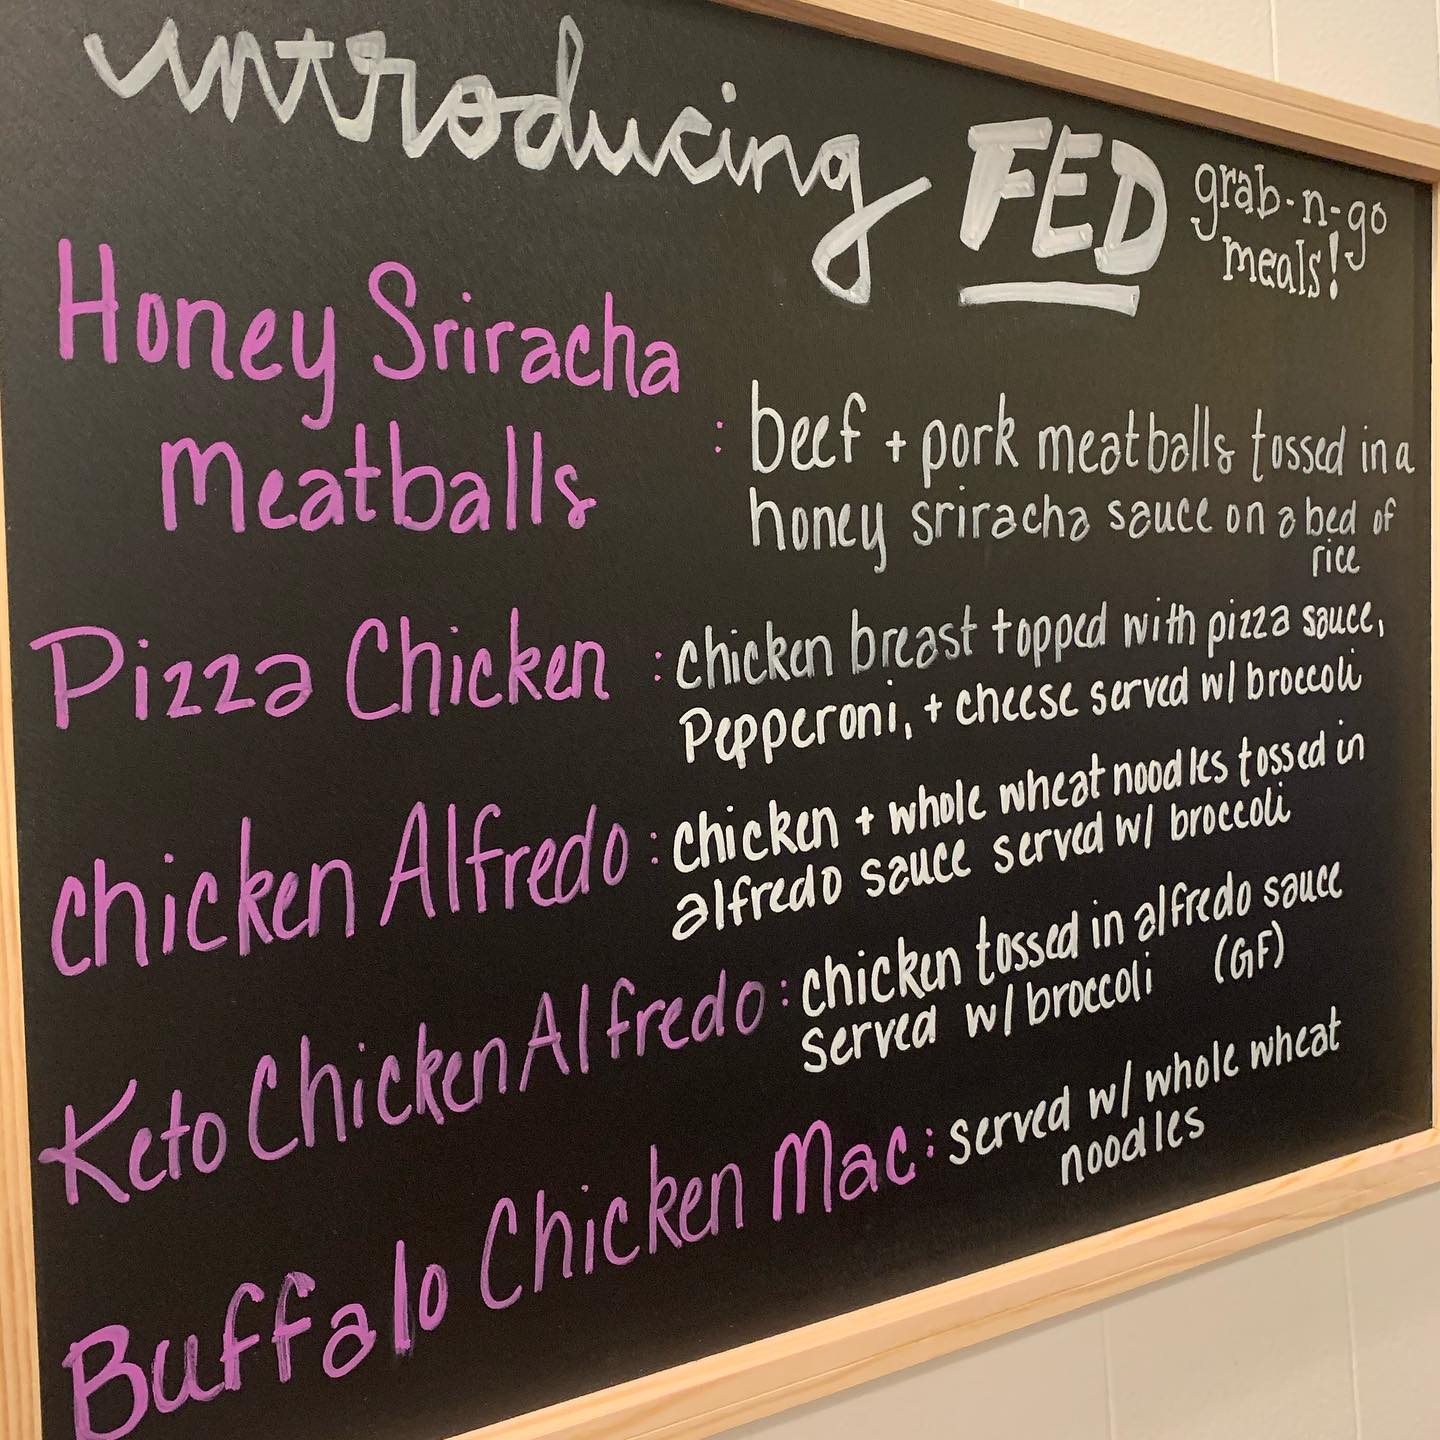 introducing FED grab-n-go
meals!
Honey Sriracha
Meatballs
: beef + pork meatballs tossed in a
honey sriracha sauce on a bed of
rice
Pizza Chicken : chicken breast topped with pizza sauce,
Pepperoni, + cheese served w/ broccoli
chicken Alfredo : chicken + whole wheat noodles tossed in
alfredo sauce served w/ broccoli
Keto Chicken Alfredo : chicken tossed in alfredo sauce
served w/ broccoli (GF)
Buffalo Chicken Mac : served w/ whole wheat
noodles